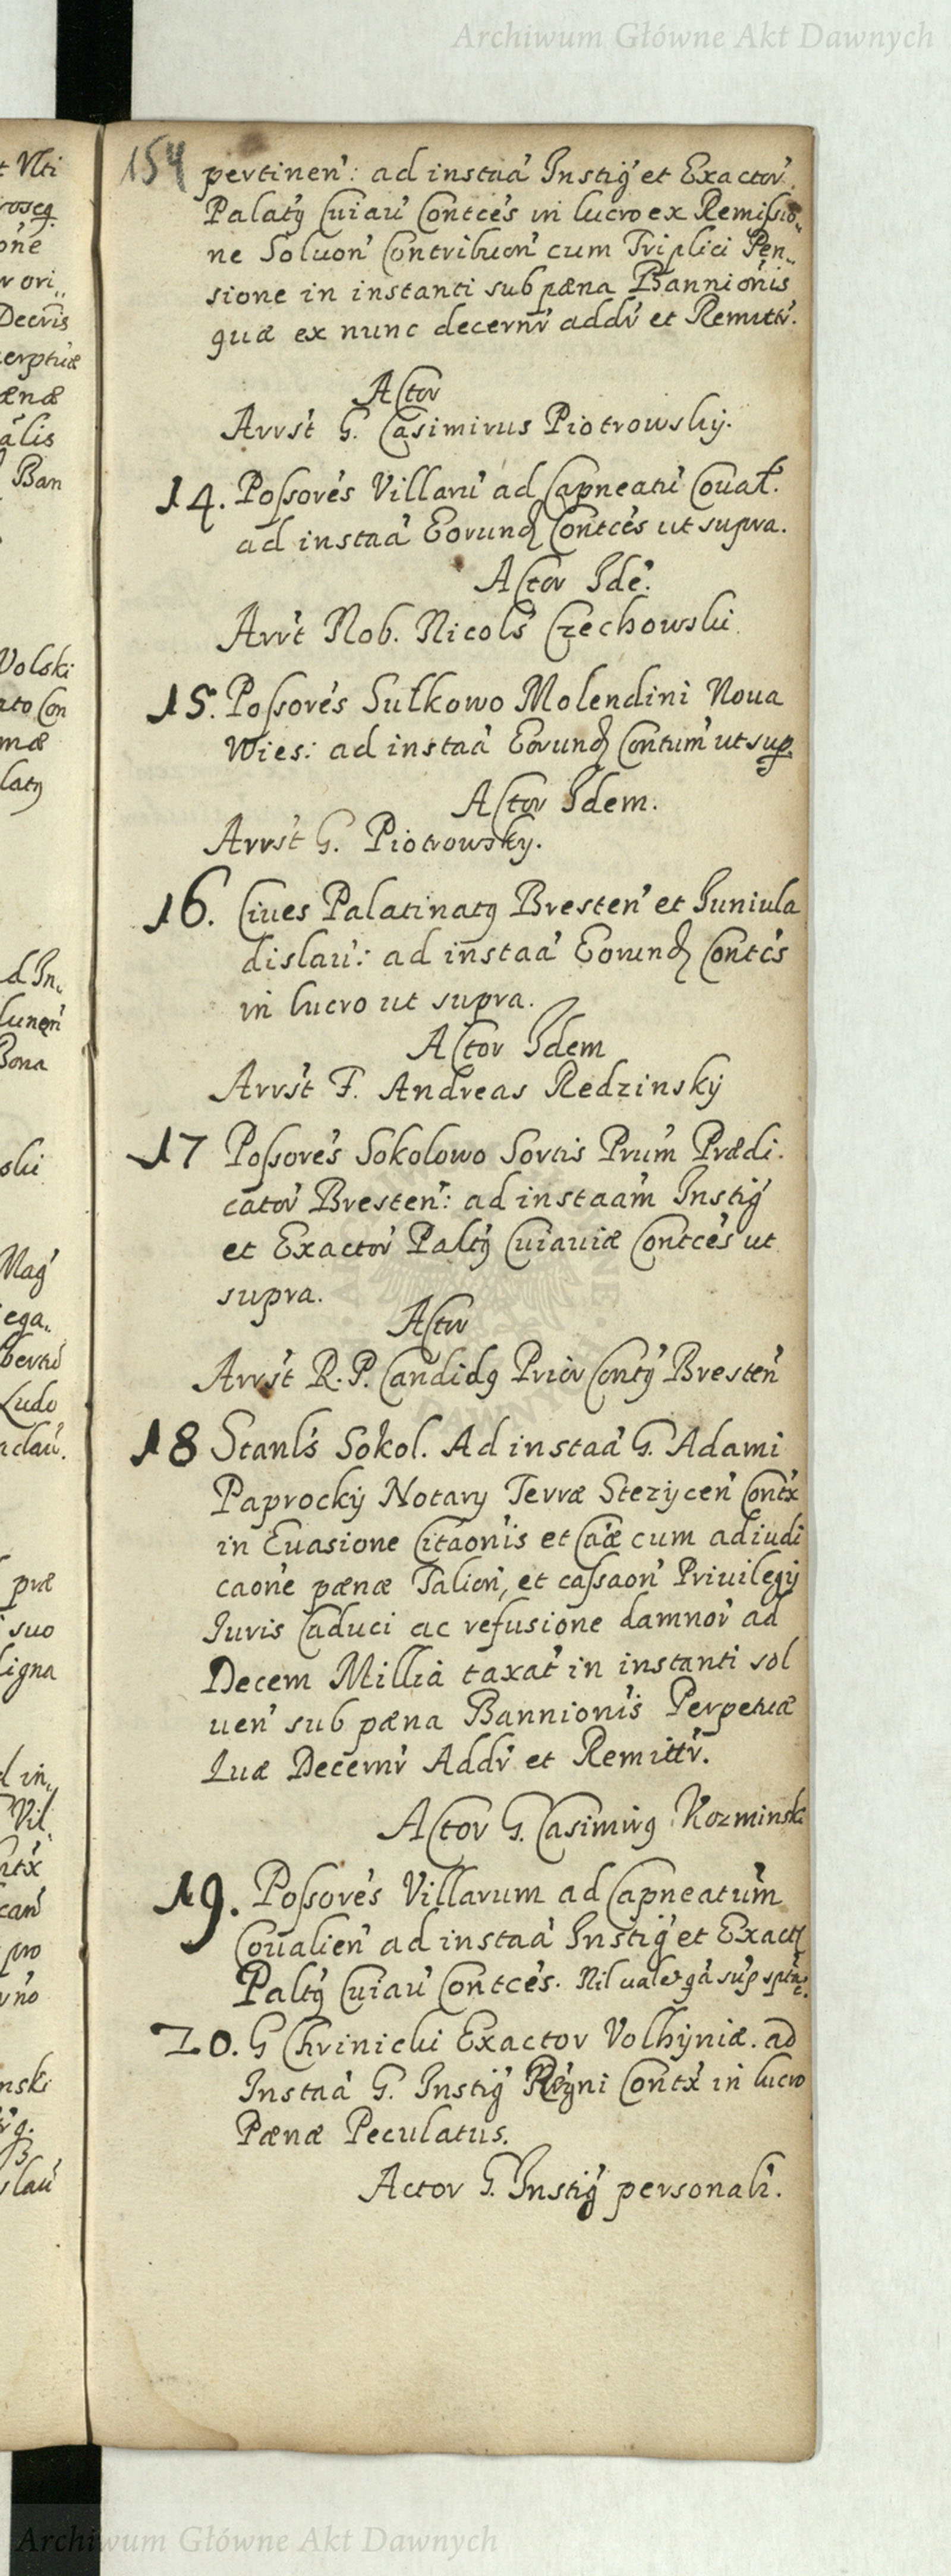 Archiwum Główne Akt Dawnych
154
pertinen': ad instaã Instig' et Exactor'
Palatÿ Cuiau' Contces in lucro ex Remissio„
ne Soluon' Contribuon' cum Triplici Pen„
sione in instanti sub pæna Bannionis
quæ ex nunc decernr' addr' et Remittr'.
Actor
Arrst G. Casimirus Piotrowskÿ.
14. Possores Villarũ ad Capneatũ Coual.
ad instaã Eorund Contces ut supra.
Actor Ide'.
Arrt Nob. Nicols Czechowski
15. Possores Sułkowo Molendini Noua
Wies: ad instaã Eorund Contum' ut sup.
Actor Idem.
Arrst G. Piotrowsky.
16. Ciues Palatinatq Bresten' et Iuniula
dislau': ad instaã Eorund Contcs
in lucro ut supra.
Actor Idem
Arrst F. Andreas Redzinskÿ
17 Possores Sokolowo Sortis Prum Prædi.
cator' Bresten': ad instaam Instig'
et Exactor' Paltÿ Cuiauiæ Contces ut
supra.
Actor
Arrst R. P. Candidq Prior Contÿ Bresten'
18 Stanls Sokol. Ad instaã G. Adami
Paprockÿ Notarÿ Terræ Stezÿcen' Contx
in Euasione Citaonis et Caæ cum adiudi
caone pænæ Talion', et cassaon' Priuilegÿ
Iuris Caduci ac refusione damnor' ad
Decem Millia taxat' in instanti sol
uen' sub pæna Bannionis Perpetuæ
Quæ Decernr' Addr' et Remittr'.
Actor G. Casimirq Kozminski
19. Possores Villarum ad Capneatum
Coualien' ad instaã Instig' et Exact
Paltÿ Cuiau' Contces. Nil uale
20. G Chrinicki Exactor Volhÿniæ. ad
Instaã G. Instig' Regni Contx in lucro
Pænæ Peculatus.
Actor G. Instig' personalr.
Archiwum Główne Akt Dawnych